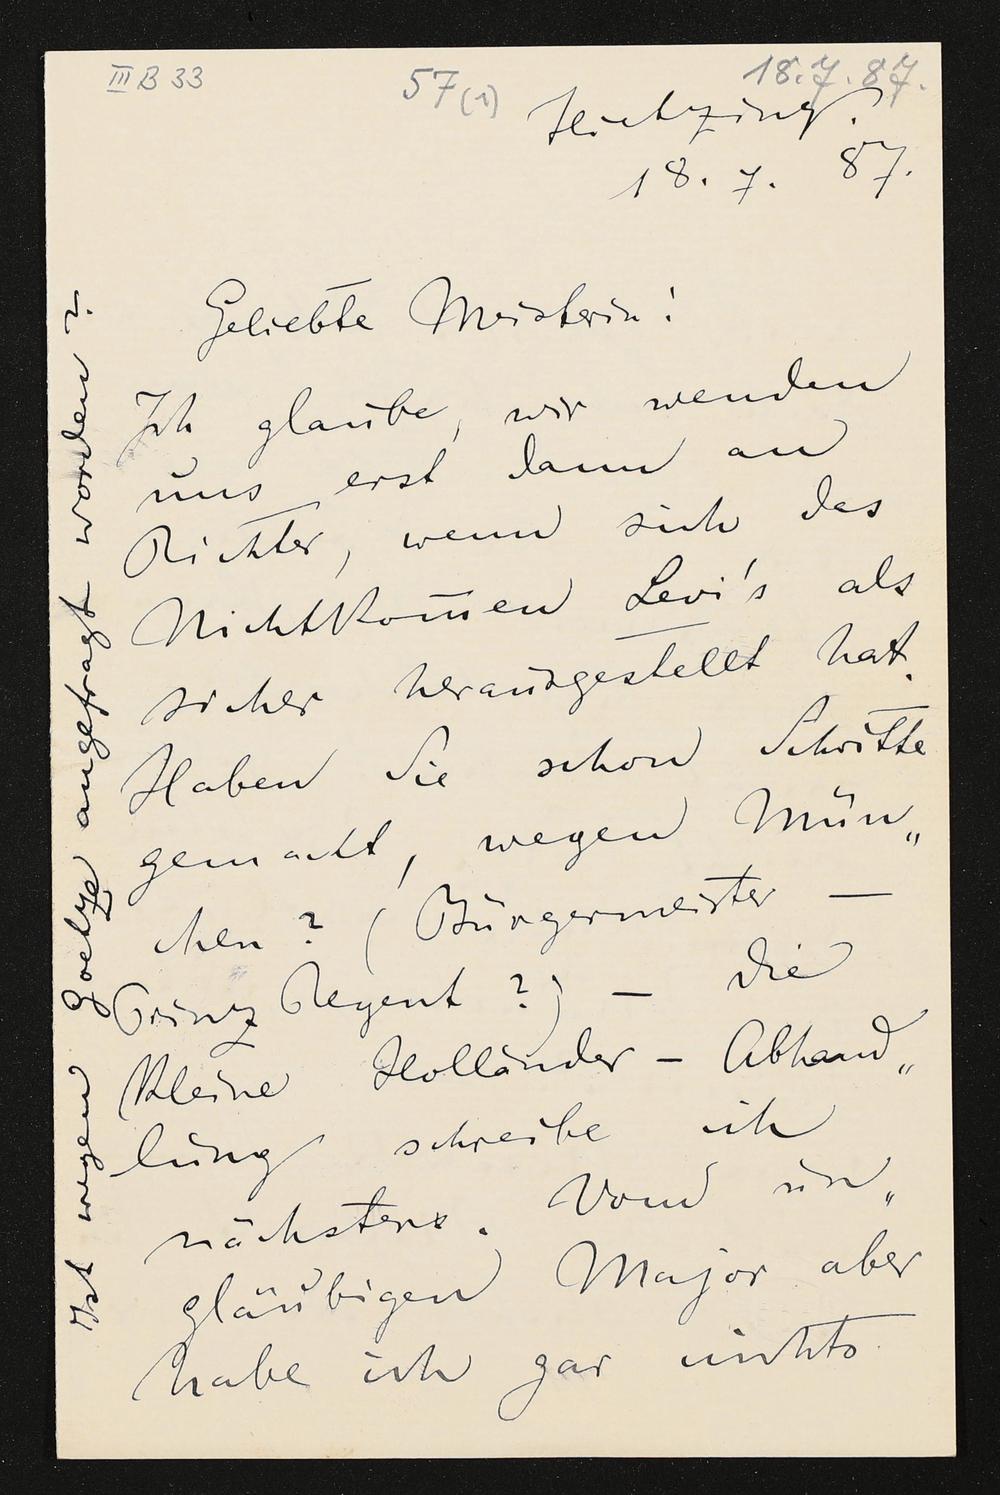 III B 33
57 (1)
18.7.87.
Hietzing.
18. 7. 87.
Geliebte Meisterin!
Ich glaube, wir wenden
uns erst dann an
Richter, wenn sich das
Nichtkom̅en Levi's als
sicher herausgestellt hat.
Haben Sie schon Schritte
gemacht, wegen Mün„
chen? (Bürgermeister —
Prinz Regent?) — Die
kleine Holländer - Abhand„
lung schreibe ich
nächstens. Vom un„
gläubigen Major aber
habe ich gar nichts
Ist wegen Goetze angefragt worden?